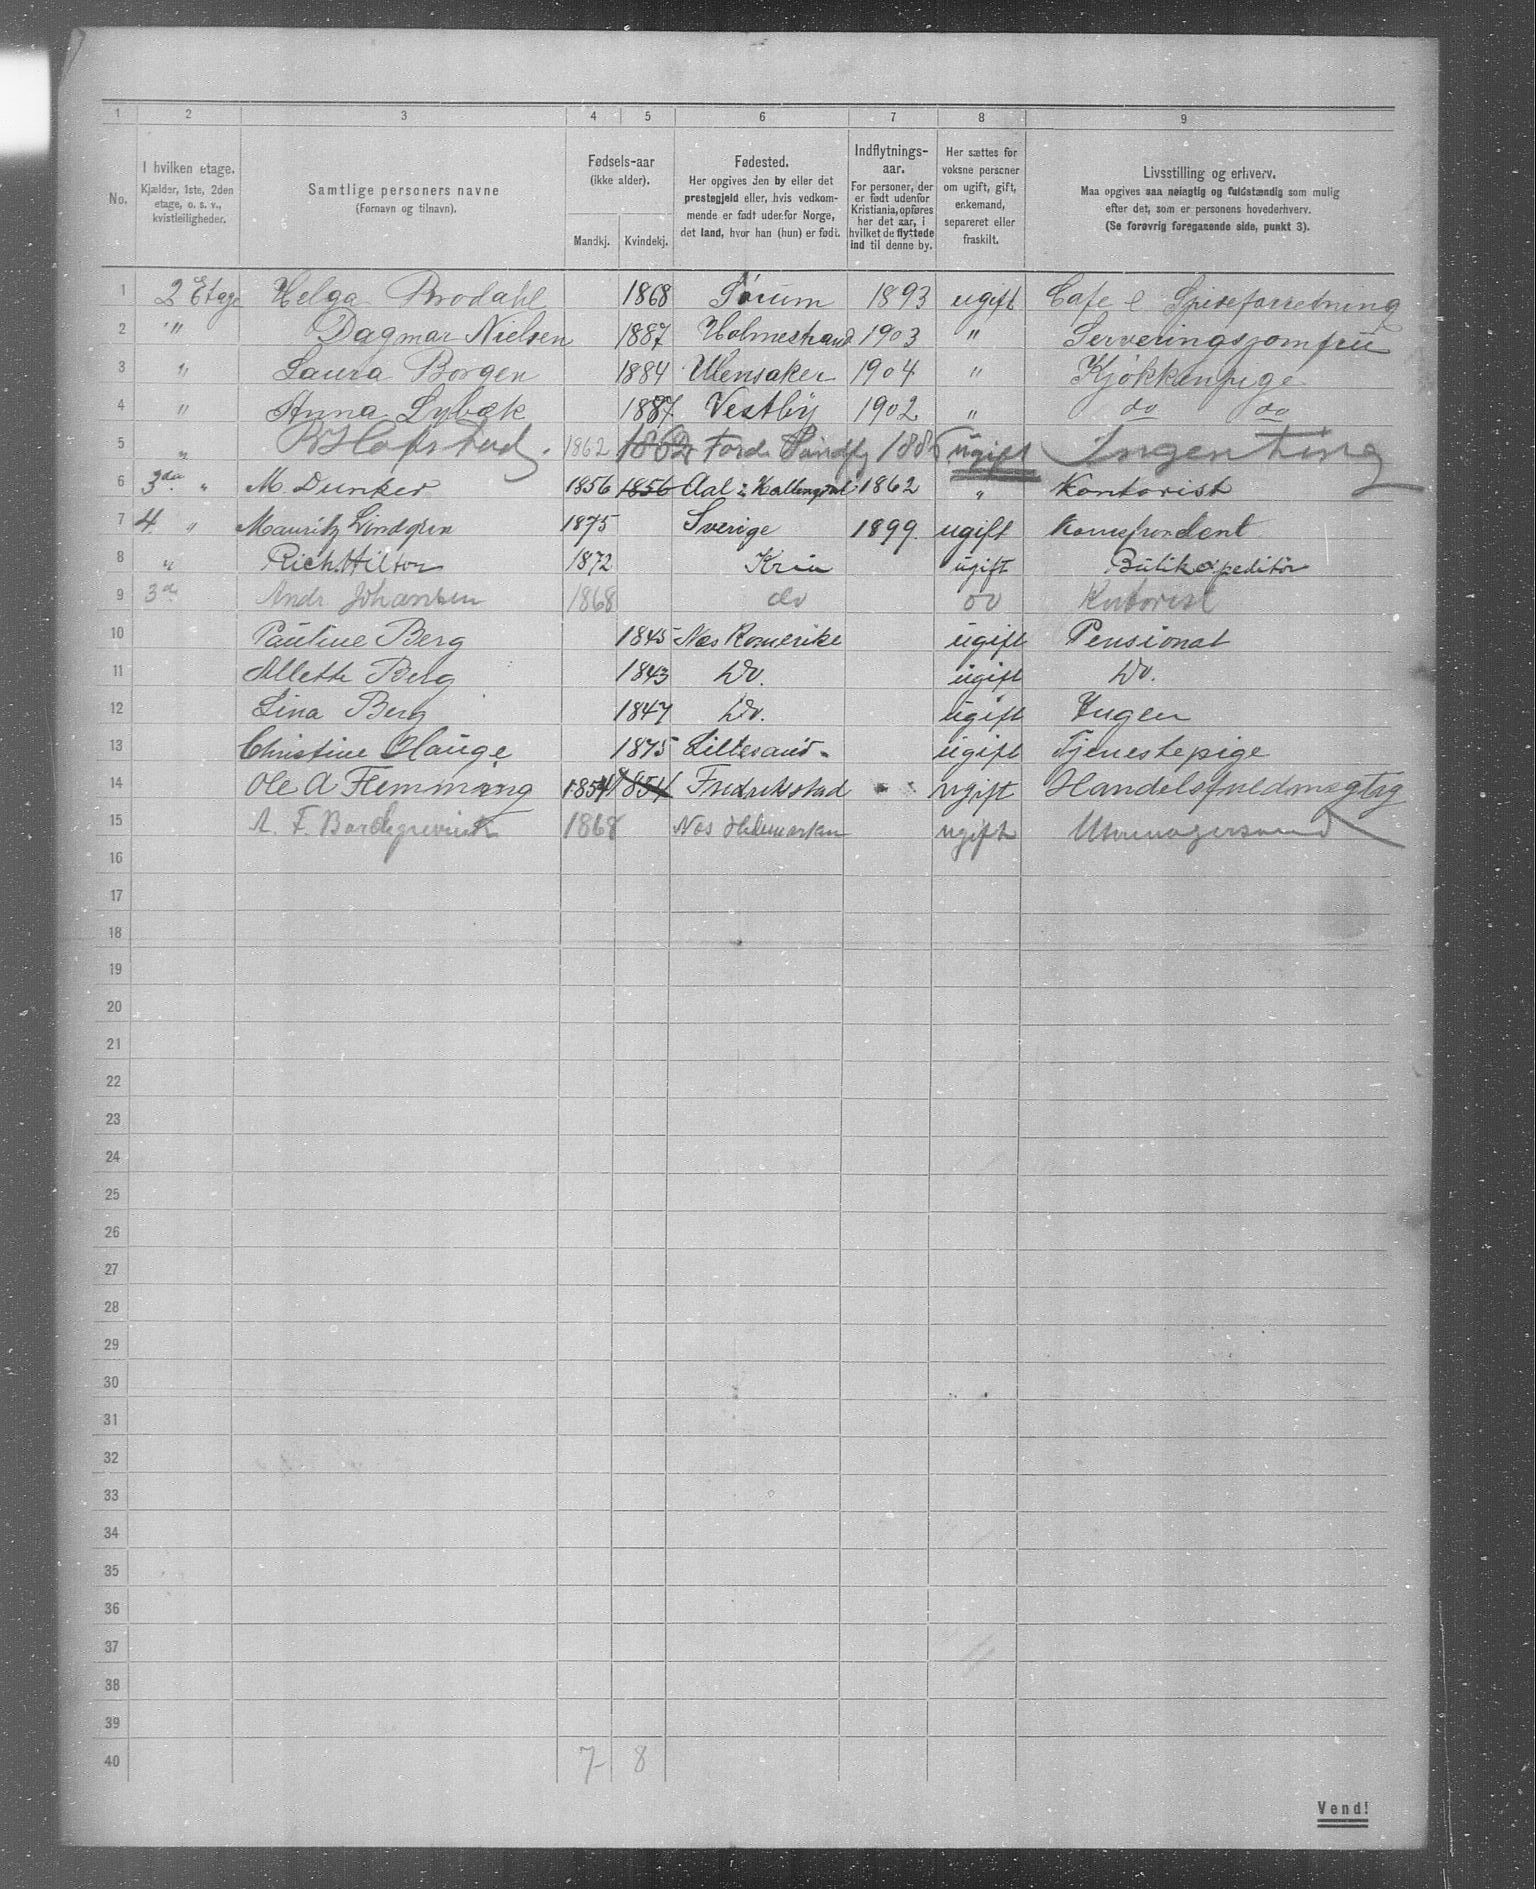 1 2 3 4 5 6 7 8 9
No.
I hvilken etage.
Kjælder, 1ste, 2den
etage, o. s. v.,
kvistleiligheder.
Samtlige personers navne
(Fornavn og tilnavn).
Fødsels-aar
(ikke alder).
Mandkj. Kvindekj.
Fødested.
Her opgives den by eller det
prestegjeld eller, hvis vedkom-
mende er født udenfor Norge,
det land, hvor han (hun) er født.
Indflytnings-
aar.
For personer, der
er født udenfor
Kristiania, opføres
her det aar, i
hvilket de flyttede
ind til denne by.
Her sættes for
voksne personer
om ugift, gift,
enkemand,
separeret eller
fraskilt.
Livsstilling og erhverv.
Maa opgives saa nøiagtig og fuldstændig som mulig
efter det, som er personens hovederhverv.
(Se forøvrig foregaaende side, punkt 3).
1 2 Etage Helga Brodahl 1868 Sørum 1893 ugift Cafe & Spiseforretning
2 " Dagmar Nielsen 1887 Holmestrand 1903 " Serveringsjomfru
3 " Laura Borgen 1884 Ulensaker 1904 " Kjøkkenpige
4 " Anna Lybæk 1887 Vestby 1902 " do do
5 " Hofstad. 1862 1862 Førde Søndfj 188 ugift Ingenting
6 3die " M. Dunker 1856 1856 Aal i Hallingdal 1862 " Kontorist
7 4. " Mauritz Lindgren 1875 Sverige 1899. ugift Korrespondent
8 " Rich. Hilton 1872 Kria ugift Butikexpeditør
9 3die Andr Johansen 1868 do do Kontorist
10 Pauline Berg 1845 Nes Romerike ugift Pensionat
11 Allette Berg 1843 Do. ugift Do.
12 Lina Berg 1847 Do. ugift Ingen
13 Christine Hauge 1875 Lillesand ugift Tjenestepige
14 Ole A Flemming 1854 1854 Fredrikstad ugift Handelsfuldmægtig
15 A. F. Borchgrevink 1868 Nes Hedemarken ugift Urmagersvend
16
17
18
19
20
21
22
23
24
25
26
27
28
29
30
31
32
33
34
35
36
37
38
39
40 7 8
Vend!